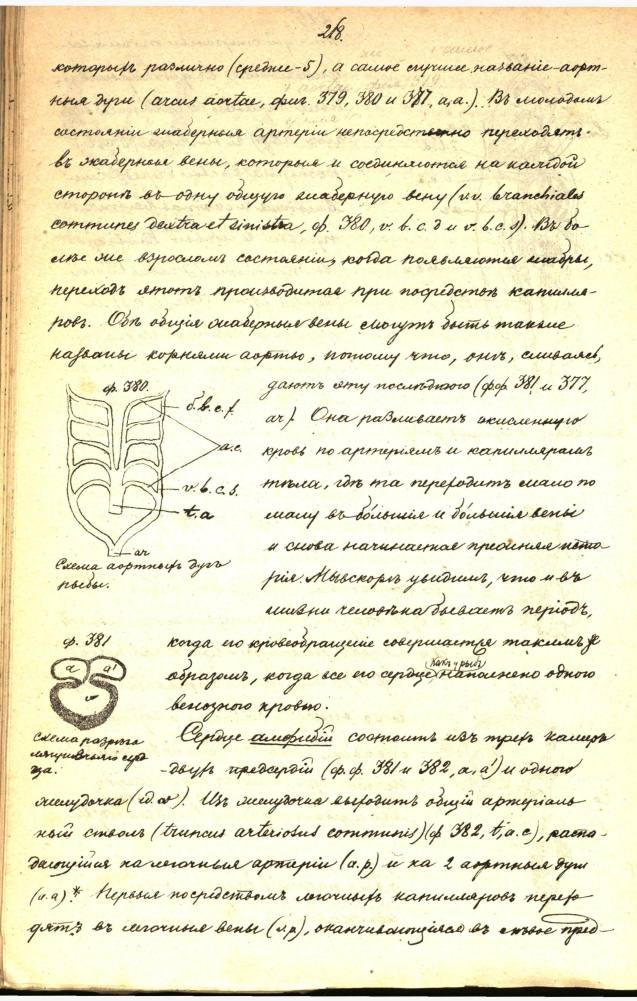 218.
которыхъ различно (среднее-5), а самое лучшее названіе-аорт-
ныя дуги (arcus aortae, фиг. 379, 380 и 387, a, a.). Въ молодомъ
состояніи жаберныя артеріи непосредственно переходятъ
въ жаберныя вены, которыя и соединяются на каждой
сторонѣ въ одну общую жаберную вену (v.v. branchiales
communes dextra et sinistra, ф. 380, v. b. c. d и v. b. c. s). Въ бо-
лѣе же взросломъ состояніи, когда появляются жабры,
переходъ этотъ производится при посредствѣ капилля-
ровъ. Обѣ общія жаберныя вены могутъ быть также
названы корнями аорты, потому что, онѣ, сливаясь,
даютъ эту послѣднюю (фф 381 и 377,
ао). Она разливаетъ окисленную
кровь по артеріямъ и капиллярамъ
тѣла, гдѣ та переходитъ мало по
малу въ бо́льшія и бо́льшія вены
и снова начинается прежняя исто-
рія. Мы вскорѣ увидимъ, что и въ
жизни человѣка бываетъ періодъ,
ф. 380.
v. b. c. d.
a.c.
v. b. c. s.
t. a
ao
Схема аортныхъ дугъ
рыбы.
когда его кровеобращеніе совершается такимъ же
образомъ, когда все его сердце (какъ у рыбъ) наполнено одною
венозною кровью.
ф. 381
a a'
v
Схема разрѣза
сердца.
Сердце амфибій состоитъ изъ трехъ камеръ
-двухъ предсердій (ф.ф. 381 и 382, a, a') и одного
желудочка (id. v). Изъ желудочка выходитъ общій артеріаль-
ный стволъ (truncus arteriosus communis) (ф 382, t, a. c), распа-
дающійся на легочныя артеріи (a. p.) и на 2 аортныя дуги
(a. a) * Первыя посредствомъ легочныхъ капилляровъ перехо-
дятъ въ легочныя вены (v. p), оканчивающіяся въ лѣвое пред-